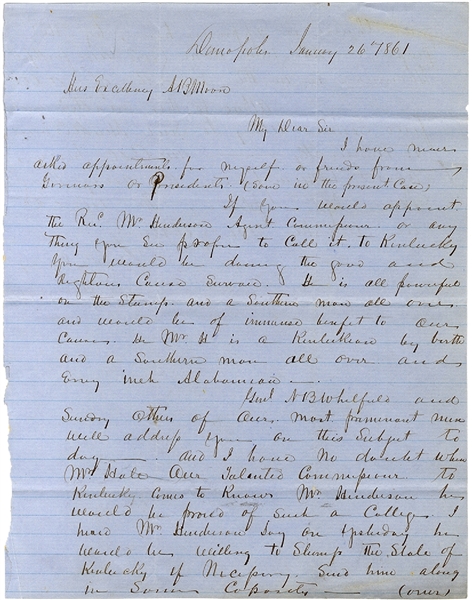 Demopolis January 26th 1861
His Excellency A B Moore
My Dear Sir
I have never
asked appointments for myself or friends from
Governors or Presidents (save in the present case)
If you would appoint
the Revd. Mr Henderson Agent Commissioner or any
thing you see proper to call it, to Kentucky
you would be doing the good and
righteous cause service. He is all powerful
on the stump and a Southern man all over
and would be of immense benefit to our
cause. He Mr H is a Kentuckian by birth
and a Southern man all over and
every inch Alabamian —
Genl N B Whitfield and
Sundry others of our most prominent men
will address you on this subject to
day — and I have no doubt when
Mr Hale our talented Commissioner to
Kentucky comes to know Mr Henderson he
would be proud of such a College. I
heard Mr Henderson say on yesterday he
would be willing to stump the State of
Kentucky if necessary. Send him along
in some capacity — (over)